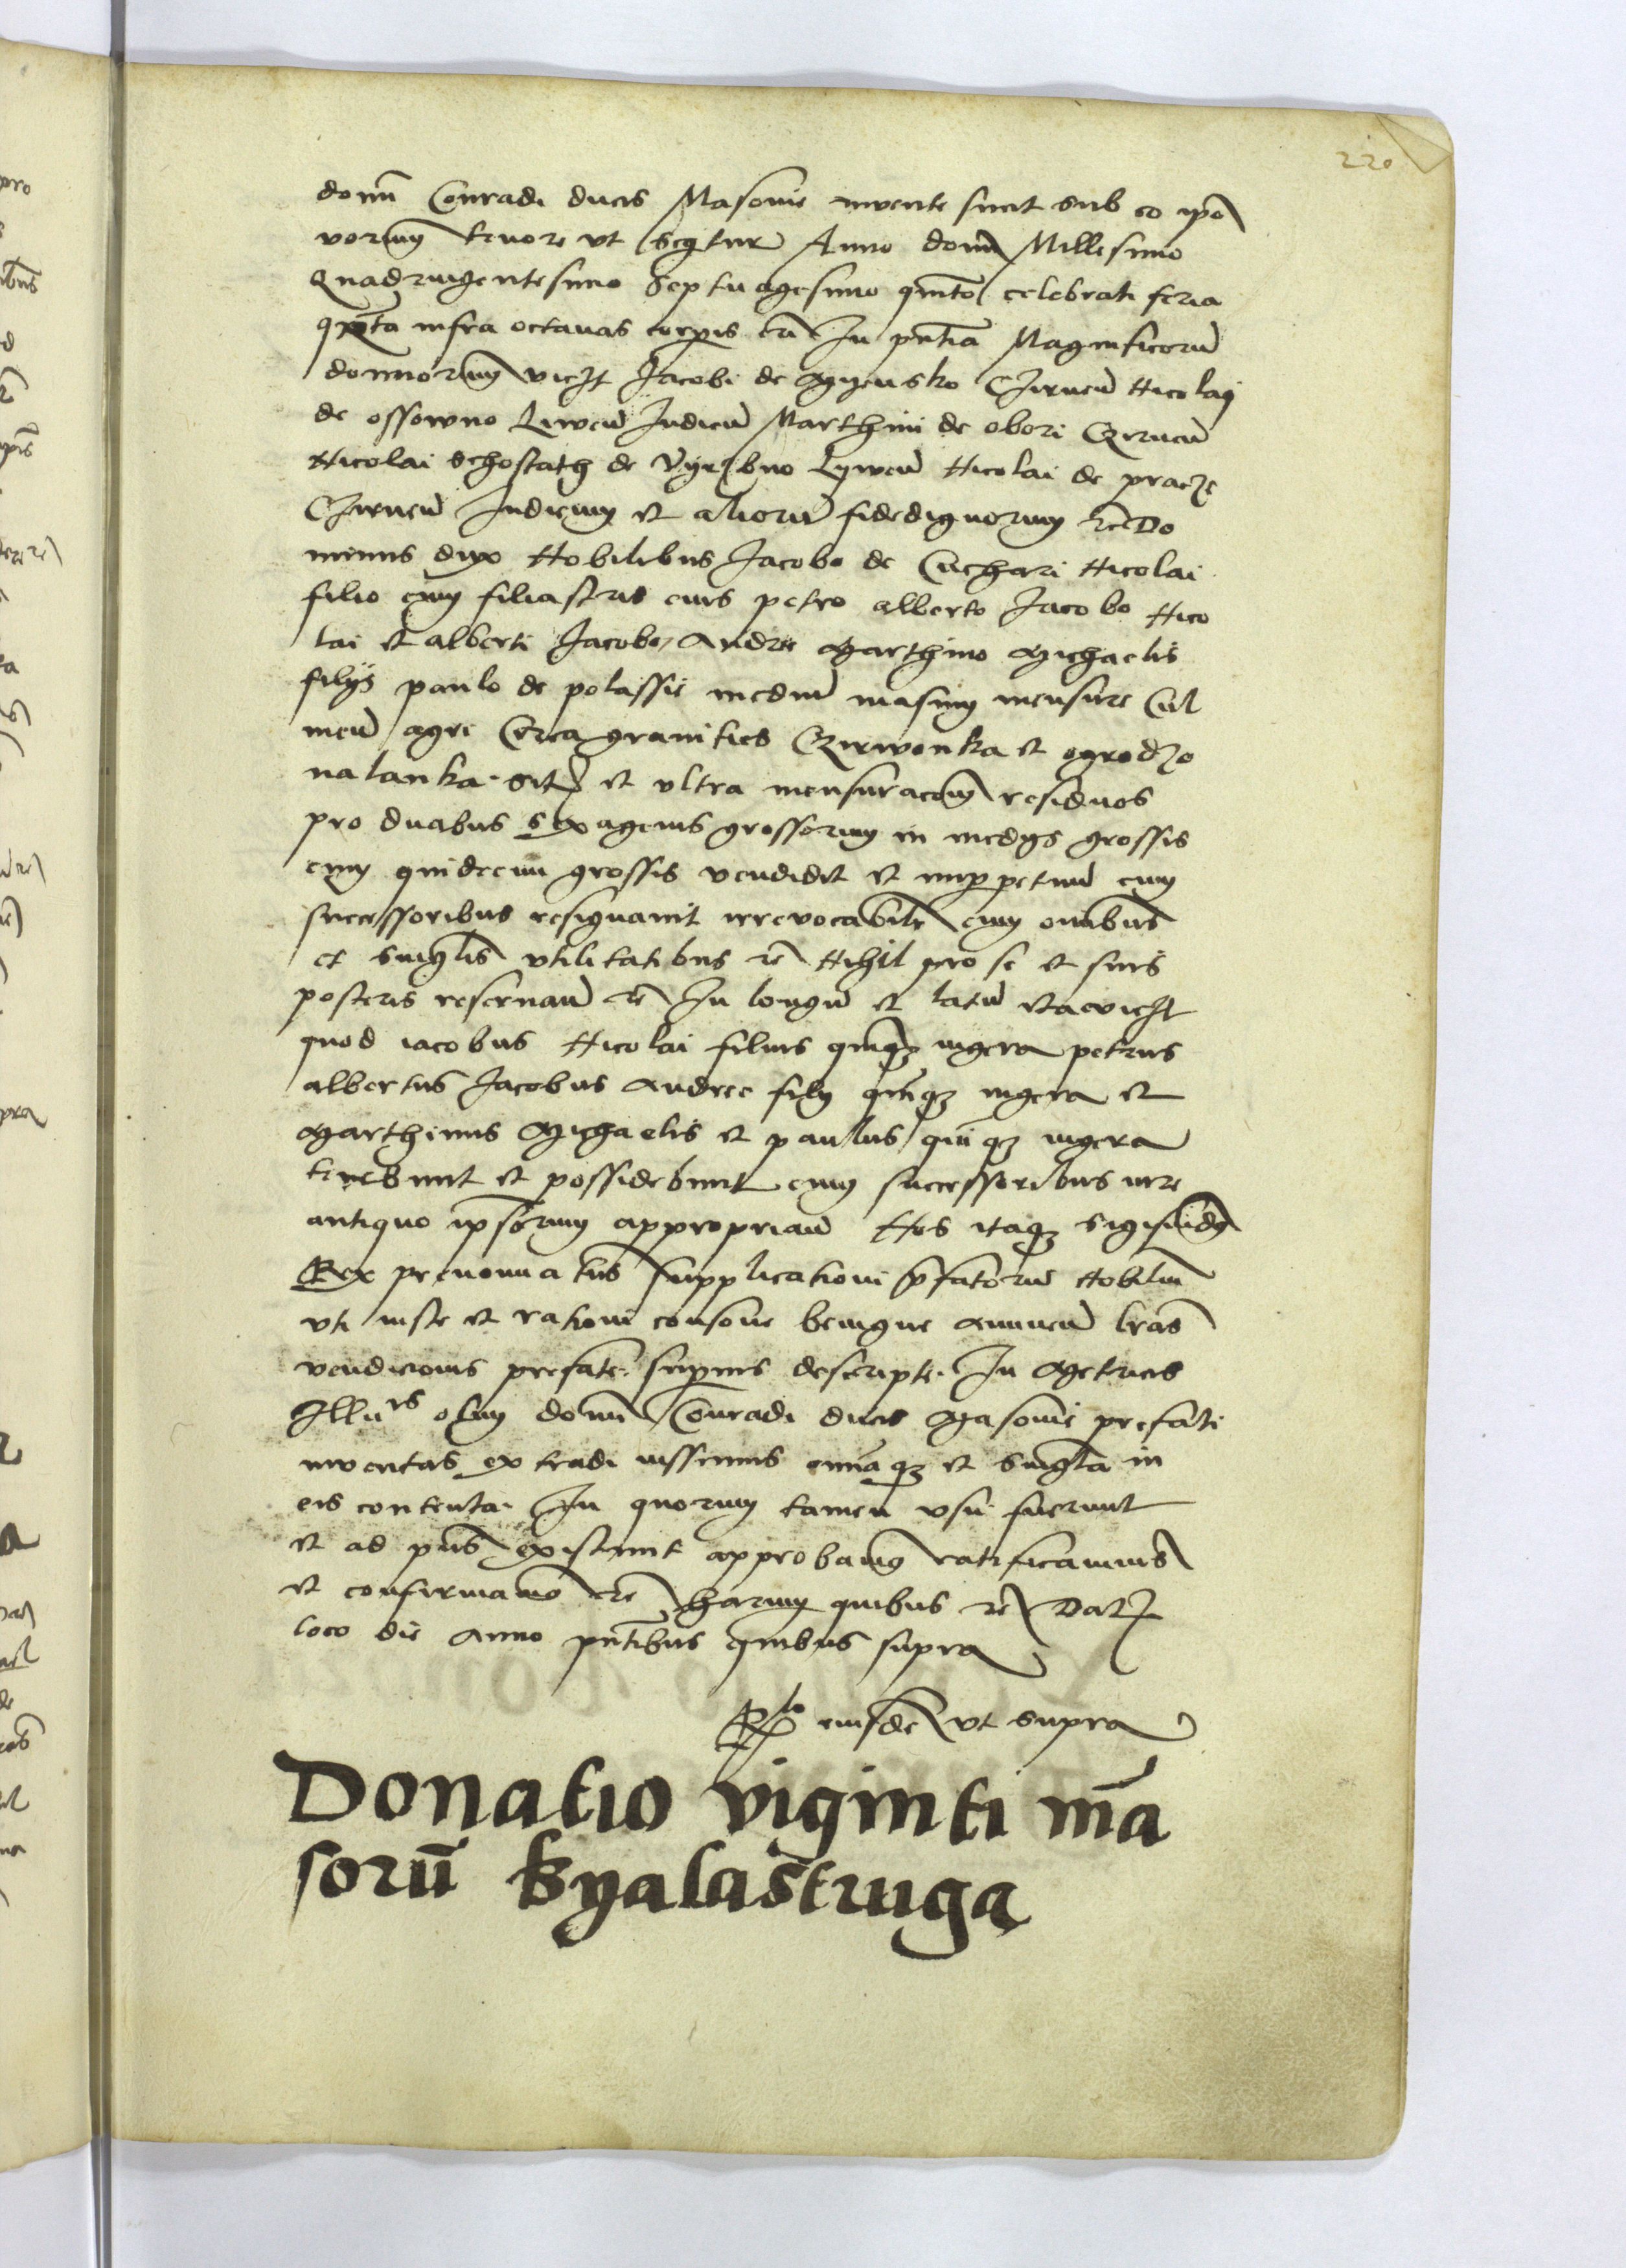 220
domi Conradi ducis Masovie invente sunt sub eo ipo
vorum tenore ut seqtur Anno domi Millesimo
Quadringentesimo Septuagesimo quito celebrati feria
quita infra octavas corpis cri In pntia Magnificoru
dominorum viczt Jacobi de Mczensko Czirnen Nicolai
de ossowno Liwen Judicu Marthini de obori Czirnen
Nicolai Schostath de Vyrzbno Lywen Nicolai de pracze
Czirnen Judicum et alioru fidedignorum etc Do
minus dux Nobilibus Jacobo de Cuchari Nicolai
filio cum filiastris eius petro alberto Jacobo Nico
lai et alberti Jacobo Andree Marthino Michaelis
filijs paulo de polassie mediu masum mensure Cul
men agri Circa granities Czirwonka et ogrodzo
nalanka sit et ultra mensuracom residuos
pro duabus sexagenis grossorum in medijs grossis
cum quindecim grossis vendidit et imperpetuu cum
successoribus resignavit irrevocabilr cum omibus
et singlis utilitatibus etc Nihil pro se et suis
posteris reservan etc In longu et latu ita viczt
quod iacobus Nicolai filius quiqz iugera petrus
albertus Jacobus Andree filij quiqz iugera et
Marthinus Michaelis et paulus quiqz iugera
tenebunt et possidebunt cum successoribus iure
antiquo ipsorum approprian Nos itaqz Sigismudg
Rex prenominatus supplicationi pfatoru Nobiliu
uti iuste et rationi consone benigne annuen lras
vendicionis prefate superius descripte In Metricis
Illris olim domi Conradi ducis Masovie prefati
inventas extradi iussimus omiaqz et singla in
eis contenta In quorum tamen usu fuerunt
et ad pns existunt approbamg ratificamus
et confirmamo etc harum quibus etc Dat
loco die Anno pntibus quibus supra
Rlo eiusde ut supra
Donatio viginti ma
soru Byalastruga